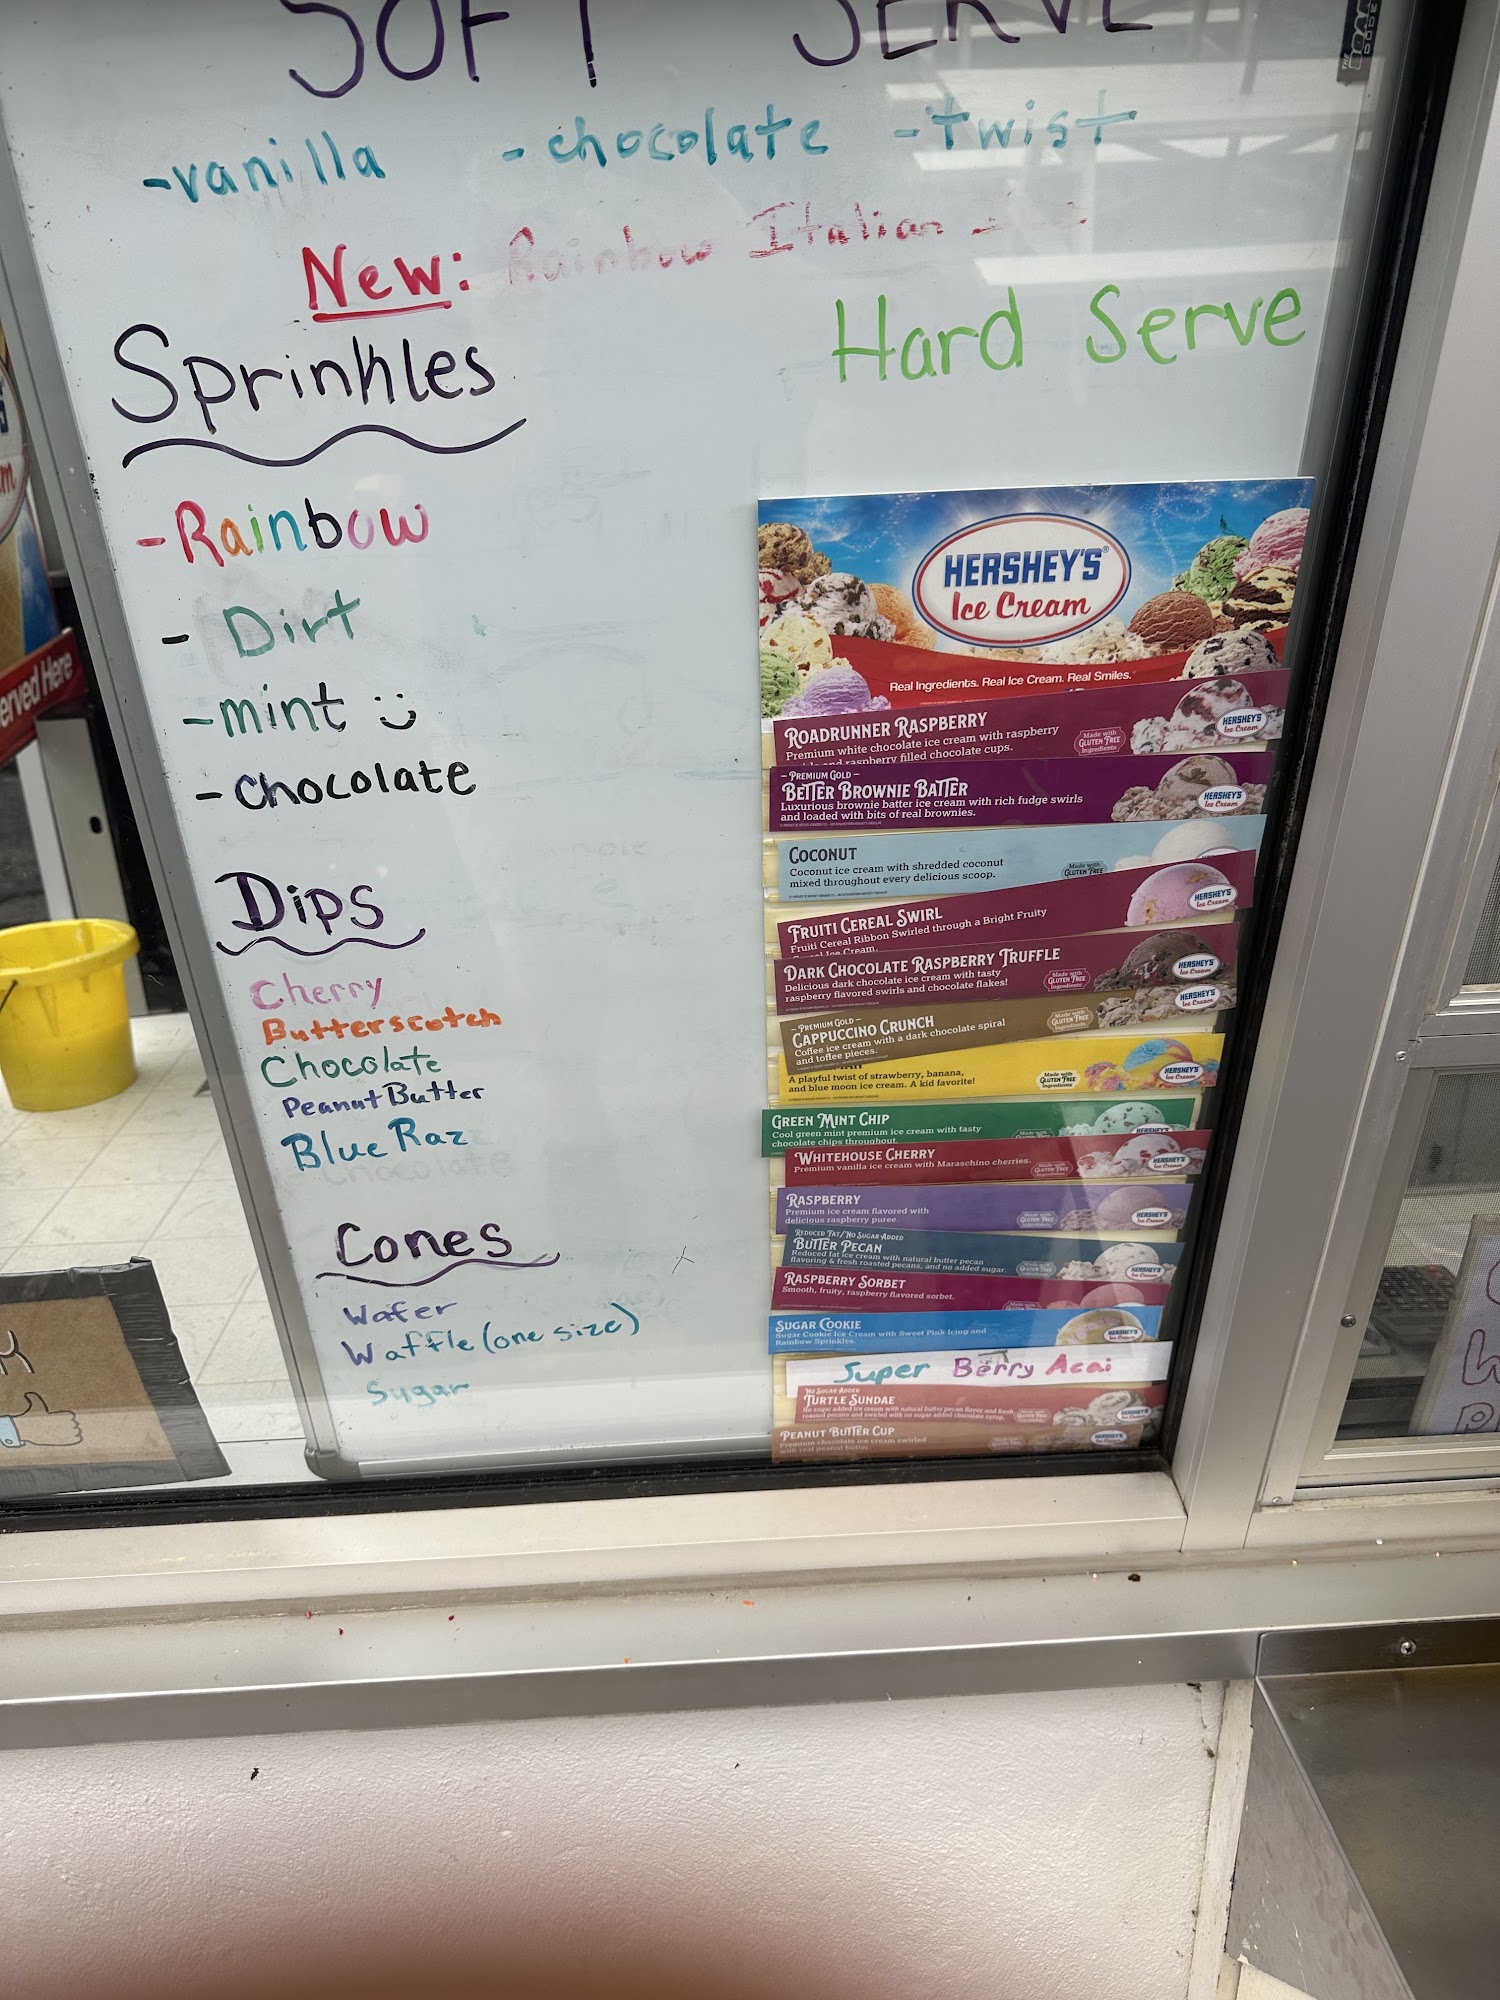 SOFT SERVE
-vanilla -chocolate -twist
New: Rainbow Italian
Sprinkles
-Rainbow
- Dirt
-mint
-chocolate
Dips
Cherry
Butterscotch
Chocolate
Peanut Butter
Blue Raz
Cones
Wafer
Waffle (one size)
Sugar
Hard Serve
HERSHEY'S®
Ice Cream
Real Ingredients. Real Ice Cream. Real Smiles.
ROADRUNNER RASPBERRY
Premium white chocolate ice cream with raspberry
and raspberry filled chocolate cups.
Made with
GLUTEN FREE
Ingredients
HERSHEY'S
Ice Cream
- PREMIUM GOLD -
BETTER BROWNIE BATTER
Luxurious brownie batter ice cream with rich fudge swirls
and loaded with bits of real brownies.
HERSHEY'S
Ice Cream
COCONUT
Coconut ice cream with shredded coconut
mixed throughout every delicious scoop.
Made with
GLUTEN FREE
FRUITI CEREAL SWIRL
Fruiti Cereal Ribbon Swirled through a Bright Fruity
Ice Cream.
HERSHEY'S
Ice Cream
DARK CHOCOLATE RASPBERRY TRUFFLE
Delicious dark chocolate ice cream with tasty
raspberry flavored swirls and chocolate flakes!
Made with
GLUTEN FREE
Ingredients
HERSHEY'S
Ice Cream
- PREMIUM GOLD -
CAPPUCCINO CRUNCH
Coffee ice cream with a dark chocolate spiral
and toffee pieces.
Made with
GLUTEN FREE
Ingredients
HERSHEY'S
Ice Cream
A playful twist of strawberry, banana,
and blue moon ice cream. A kid favorite!
Made with
GLUTEN FREE
Ingredients
HERSHEY'S
Ice Cream
GREEN MINT CHIP
Cool green mint premium ice cream with tasty
chocolate chips throughout.
Made with
HERSHEY'S
WHITEHOUSE CHERRY
Premium vanilla ice cream with Maraschino cherries.
Made with
GLUTEN FREE
Ingredients
HERSHEY'S
Ice Cream
RASPBERRY
Premium ice cream flavored with
delicious raspberry puree.
Made with
GLUTEN FREE
Ingredients
HERSHEY'S
Ice Cream
REDUCED FAT/NO SUGAR ADDED
BUTTER PECAN
Reduced fat ice cream with natural butter pecan
flavoring & fresh roasted pecans, and no added sugar.
Made with
GLUTEN FREE
Ingredients
HERSHEY'S
Ice Cream
RASPBERRY SORBET
Smooth, fruity, raspberry flavored sorbet.
SUGAR COOKIE
Sugar Cookie Ice Cream with Sweet Pink Icing and
Rainbow Sprinkles.
HERSHEY'S
Ice Cream
Super Berry Acai
NO SUGAR ADDED
TURTLE SUNDAE
No sugar added ice cream with natural butter pecan flavor and fresh
roasted pecans and swirled with no sugar added chocolate syrup.
HERSHEY'S
Ice Cream
PEANUT BUTTER CUP
Premium chocolate ice cream swirled
with real peanut butter.
HERSHEY'S
Ice Cream
erved Here
THE
BOARD
DUDES